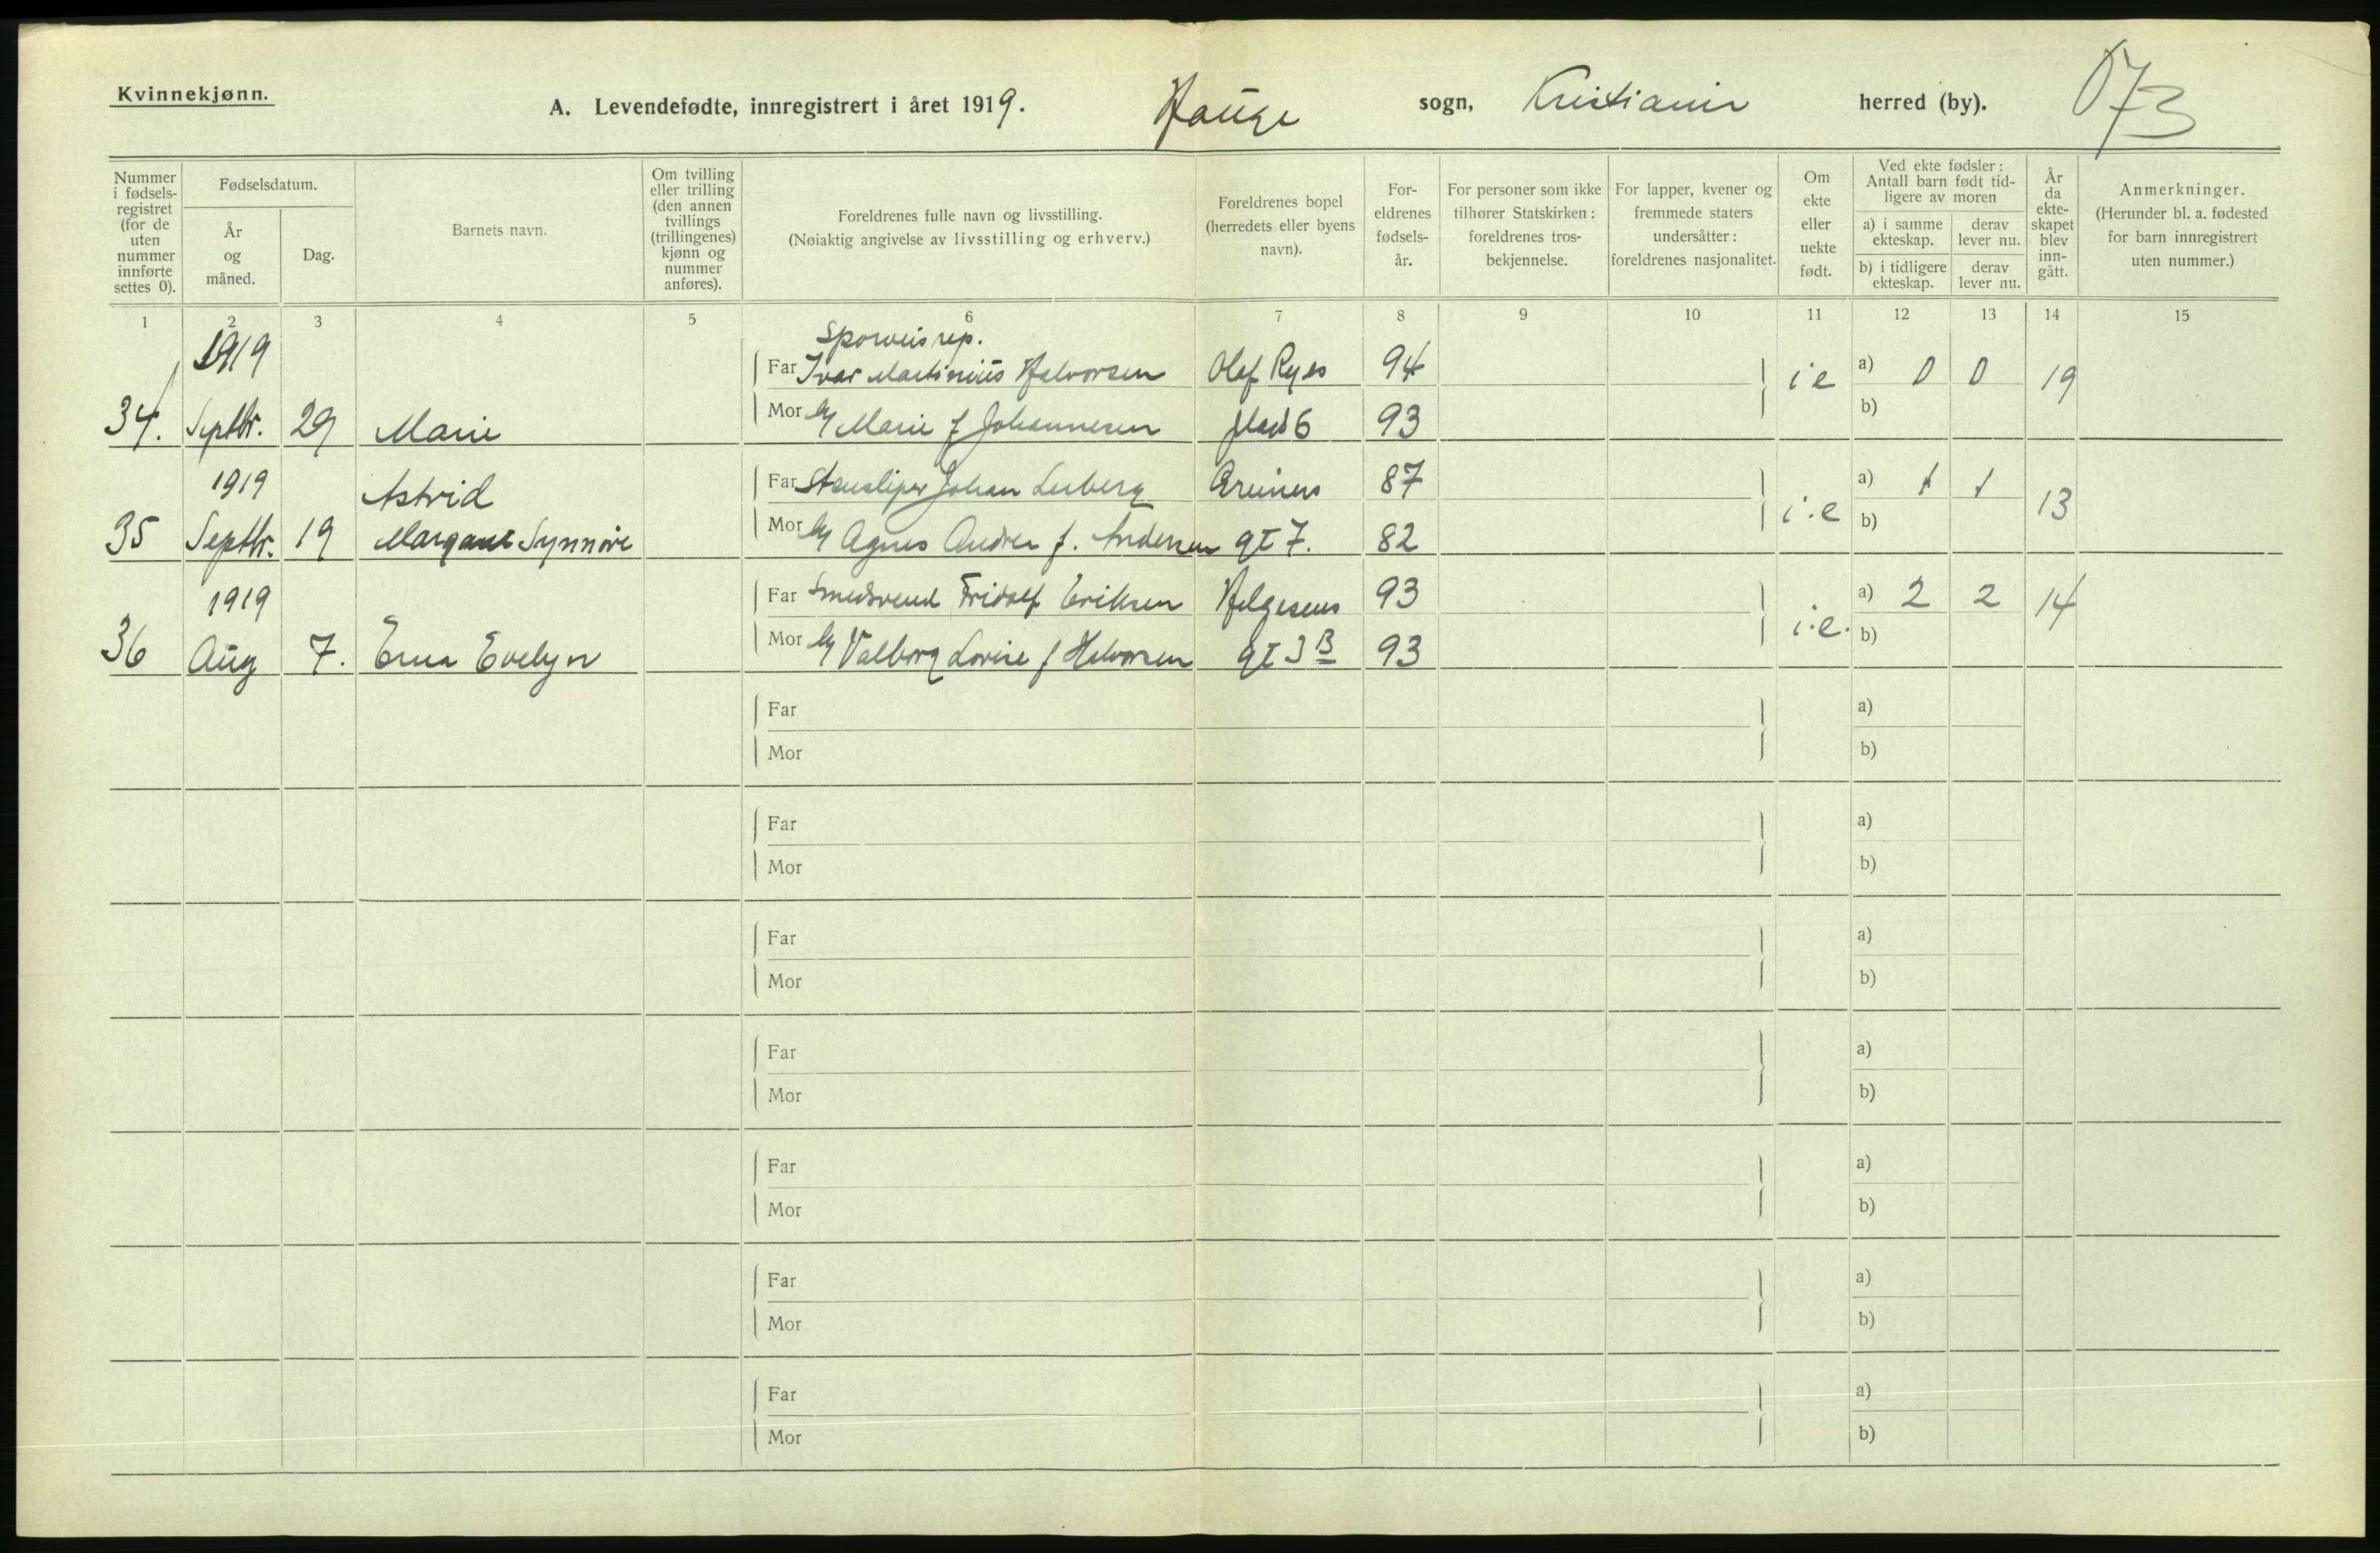 Kvinnekjønn.
A. Levendefødte, innregistrert i året 1919. Hauge sogn, Kristiania herred (by). 073
Nummer i fødsels-registret (for de uten nummer innførte settes 0).
Fødselsdatum.
År og måned.
Dag.
Barnets navn.
Om tvilling eller trilling (den annen tvillings (trillingenes) kjønn og nummer anføres).
Foreldrenes fulle navn og livsstilling.
(Nøiaktig angivelse av livsstilling og erhverv.)
Foreldrenes bopel (herredets eller byens navn).
For-eldrenes fødsels-år.
For personer som ikke tilhører Statskirken: foreldrenes tros-bekjennelse.
For lapper, kvener og fremmede staters undersåtter: foreldrenes nasjonalitet.
Om ekte eller uekte født.
Ved ekte fødsler: Antall barn født tid-ligere av moren
a) i samme ekteskap.
derav lever nu.
b) i tidligere ekteskap.
derav lever nu.
År da ekte-skapet blev inn-gått.
Anmerkninger.
(Herunder bl. a. fødested for barn innregistrert uten nummer.)
1 2 3 4 5 6 7 8 9 10 11 12 13 14 15
1919 Sporveisrep.
Far Ivar Martinius Halvorsen Olaf Ryes 94 i e a) 0 0 19
34. Septbr. 29 Marie Mor Marie f Johannesen plads 6 93 b)
1919 Astrid Far Johan Lerberg Grüners 87 i.e a) 1 1 13
35 Septbr. 19 Margaret Synnøve Mor Agnes Andrea f. Andersen gt 7. 82 b)
1919 Far Smedsvend Fridolf Eriksen Helgesens 93 i.e. a) 2 2 14
36 Aug 7. Erna Evelyn Mor Valborg Lovise f Halvorsen gt 3 B 93 b)
Far a)
Mor b)
Far a)
Mor b)
Far a)
Mor b)
Far a)
Mor b)
Far a)
Mor b)
Far a)
Mor b)
Far a)
Mor b)